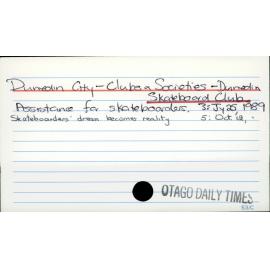 Dunedin City - Clubs & Societies - Dunedin
Skateboard Club
Assistance for skateboarders. 3: Jy 25 1989
Skateboarders' dream becomes reality 5: Oct 12, -
OTAGO DAILY TIMES